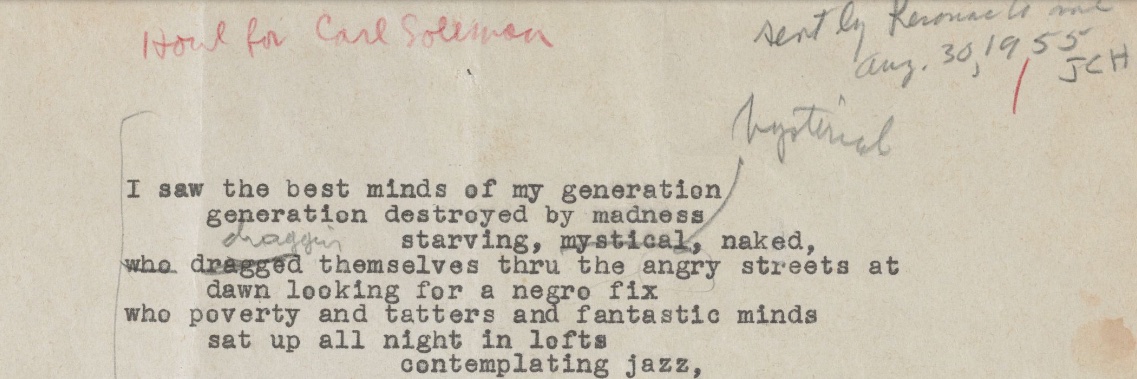 Howl for Carl Solomon
sent by Kerouac to me
Aug. 30, 1955
JCH
hysterical
I saw the best minds of my generation
generation destroyed by madness
starving, mystical, naked,
draggin
who dragged themselves thru the angry streets at
dawn looking for a negro fix
who poverty and tatters and fantastic minds
sat up all night in lofts
contemplating jazz,